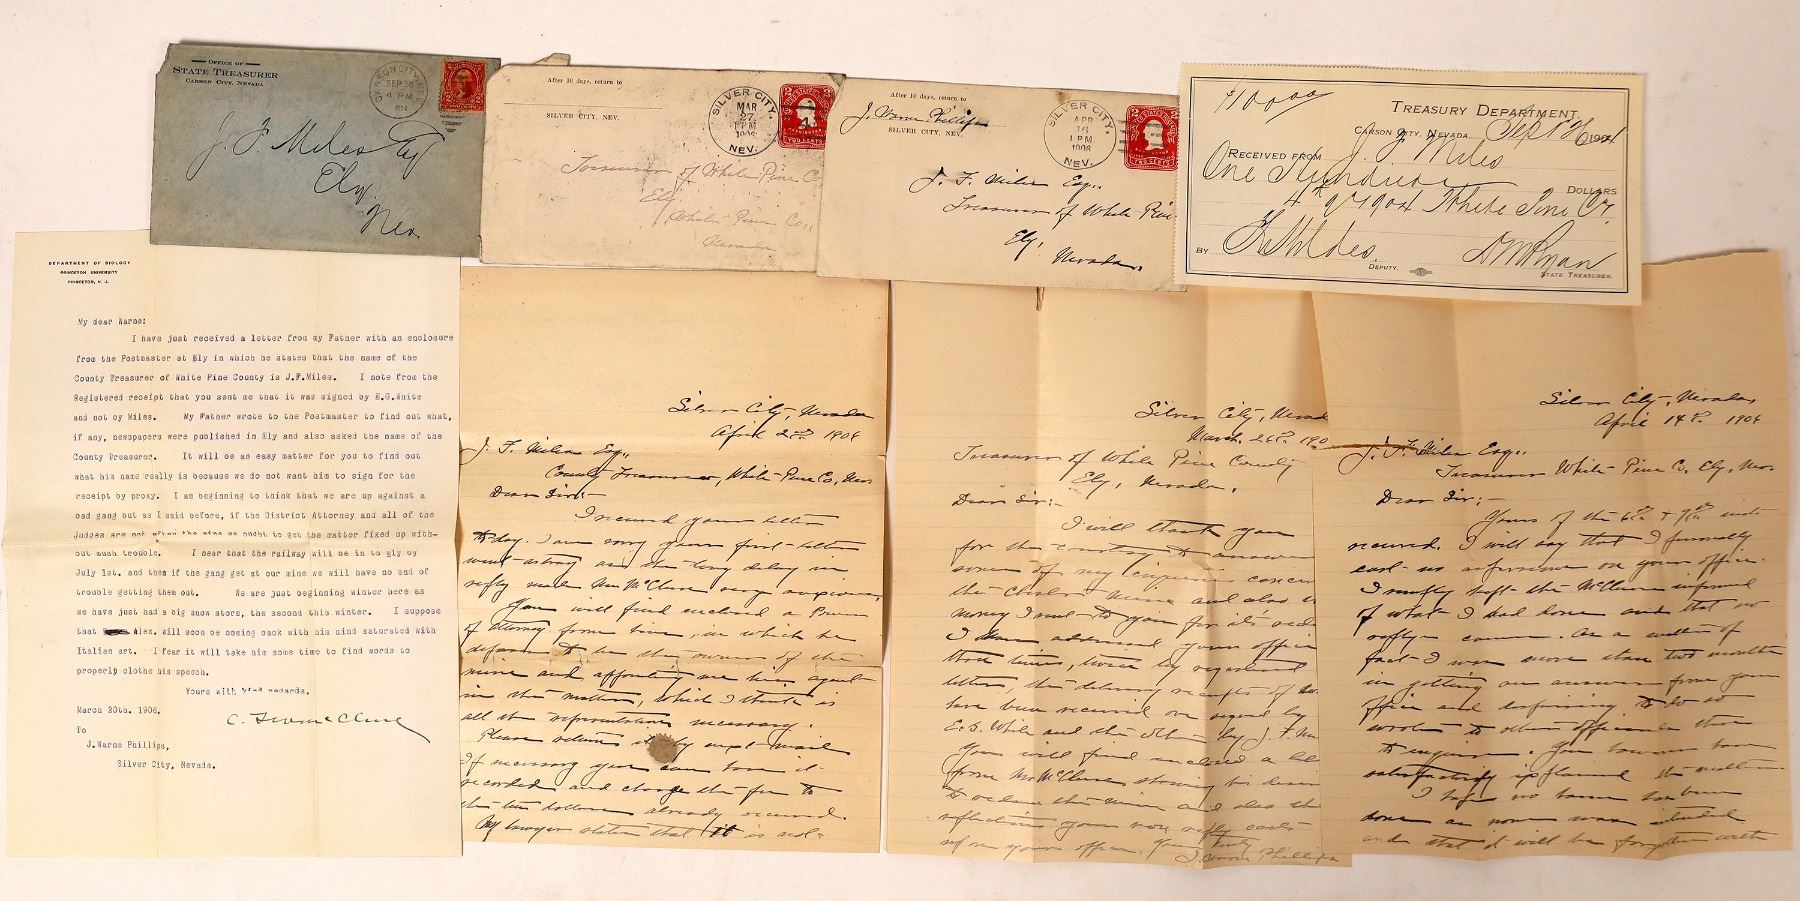 OFFICE OF
STATE TREASURER
CARSON CITY, NEVADA
CARSON CITY, NEV.
SEP 30
4 PM
1904
J. F. Miles Esq
Ely
Nev.
After 10 days, return to
SILVER CITY, NEV.
SILVER CITY,
MAR
27
1 PM
1906
NEV.
TWO CENTS
Treasurer of White Pine Co
Ely
White Pine Co.,
Nevada
After 10 days, return to
J. Warne Phillips
SILVER CITY, NEV.
SILVER CITY,
APR
16
1 PM
1906
NEV.
TWO CENTS
J. F. Miles Esq.,
Treasurer of White Pine
Ely,
Nevada.
$100.00
TREASURY DEPARTMENT,
CARSON CITY, NEVADA Sept 26 1904
RECEIVED FROM J. F. Miles
One Hundred DOLLARS
4th qr 1904 White Pine Co.
BY DEPUTY. D M Ryan
STATE TREASURER.
DEPARTMENT OF BIOLOGY
PRINCETON UNIVERSITY
PRINCETON, N. J.
My dear Warne:
I have just received a letter from my Father with an enclosure
from the Postmaster at Ely in which he states that the name of the
County Treasurer of White Pine County is J.F.Miles. I note from the
Registered receipt that you sent me that it was signed by E.G.White
and not by Miles. My Father wrote to the Postmaster to find out what,
if any, newspapers were published in Ely and also asked the name of the
County Treasurer. It will be an easy matter for you to find out
what his name really is because we do not want him to sign for the
receipt by proxy. I am beginning to think that we are up against a
bad gang out as I said before, if the District Attorney and all of the
Judges are not after the mine we ought to get the matter fixed up with-
out much trouble. I hear that the railway will be in to Ely by
July 1st. and then if the gang get at our mine we will have no end of
trouble getting them out. We are just beginning winter here as
we have just had a big snow storm, the second this winter. I suppose
that Alex. will soon be coming back with his mind saturated with
Italian art. I fear it will take him some time to find words to
properly clothe his speech.
Yours with kind regards,
March 20th. 1906.
C. F. W. McClure
To
J.Warne Phillips,
Silver City, Nevada.
Silver City, Nevada
April 2nd 1906
J. F. Miles Esq.,
County Treasurer, White Pine Co, Nev
Dear Sir:-
I received your letter
to-day. I am sorry your first letter
went astray as the long delay in
reply made Mr McClure very suspicious.
You will find enclosed a Power
of attorney from him, in which he
to be the owner of the
mine and appointing me his agent
in the matter, which I think is
all the representation necessary.
Please return it by next mail
If necessary you can have it
recorded and charge the fee to
the two dollars already received.
My lawyer states that it is not
Silver City, Nevad
March 26th 190
Treasurer of White Pine County
Ely, Nevada.
Dear Sir:-
I will thank you
for the courtesy to answer
some of my inquiries concer
the Mine and also
money I sent to you for it's
I have addressed your office
three times, twice by registered
letters, the delivery receipts of
have been received one signed by
E. G. White and the other by J. F. M
You will find enclosed a
from Mr McClure showing his desire
to redeem the mine and also the
reflections your non reply casts
upon your office. Yours truly
J. Warne Phillips
Silver City, Nevada,
April 14th 1906
J. F. Miles Esq.,
Treasurer White Pine Co, Ely, Nev.
Dear Sir:-
Yours of the 6th & 7th inst
received. I will say that I personally
cast no aspersions on your office.
I simply kept Mr McClure informed
of what I had done and that no
reply came. As a matter of
fact I was more than two months
in getting an answer from your
office and to do so
wrote to other officers there
to inquire. You however have
satisfactorily explained the matter.
I hope no harm has been
done as none was intended
and that it will be forgotten with